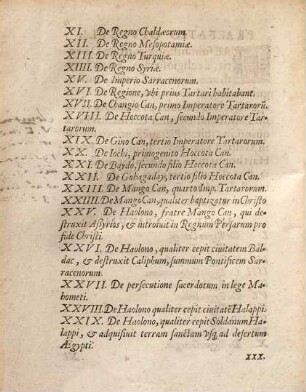 XI. De Regno Chaldæorum.
XII. De Regno Mesopotamiæ.
XIII. De Regno Turquiæ.
XIIII. De Regno Syriæ.
XV. De Imperio Sarracenorum.
XVI De Regione, vbi prius Tartari habitabant.
XVII. De Changio Can, primo Imperatore Tartarorũ.
XVIII. De Hoccota Can, secundo Imperatore Tar-
tarorum.
XIX. De Gino Can, tertio Imperatore Tartarorum.
XX. De Iochi, primogenito Hoccota Can.
XXI De Baydo, secundo filio Hoccota Can.
XXII. De Gobagaday, tertio filio Hoccota Can.
XXIII. De Mango Can, quarto Imp. Tartarorum.
XXIIII. De Mango Can, qualiter baptizatur in Christo
XXV. De Haolono, fratre Mango Can, qui de-
struxit Assyrios, & introiuit in Regnum Persarum pro
fide Christi.
XXVI. De Haolono, qualiter cepit ciuitatem Bal-
dac, & destruxit Caliphum, summum Pontificem Sar-
racenorum.
XXVII. De persecutione sacerdotum in lege Ma-
hometi.
XXVIII. De Haolono qualiter cepit ciuitatẽ Halappi.
XXIX. De Haolono, qualiter cepit Soldanum Ha-
lappi, & adquisiuit terram sanctam vsq; ad desertum
Ægypti.
XXX.